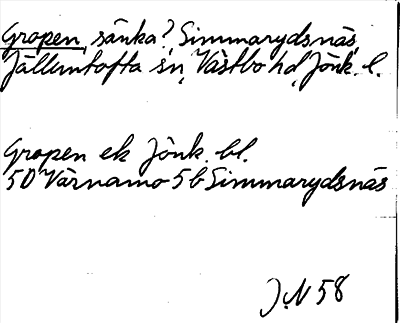 Gropen, sänka? Simmarydsnäs,
Jälluntofta sn, Västbo hd, Jönk. l.
Gropen ek Jönk. bl.
5D Värnamo 5b Simmarydsnäs
J.N 58